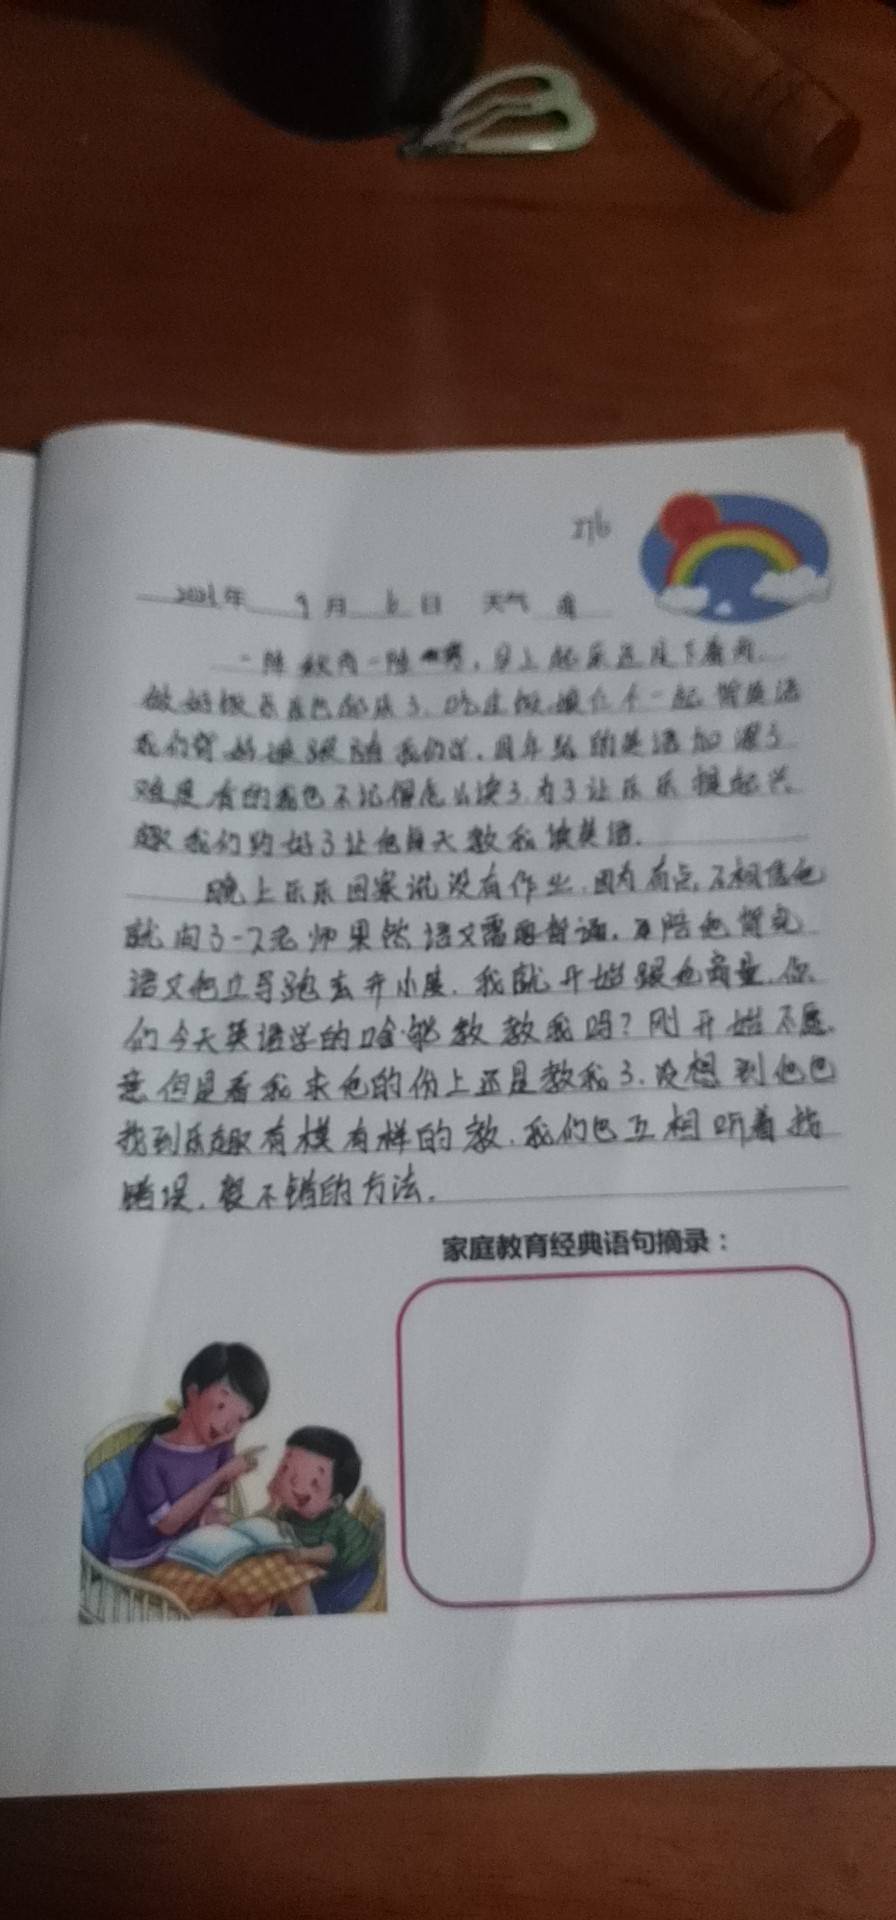 276
2021年 9月 6日 天气 雨
一阵秋雨一阵寒,早上起床还在下着雨.
做好饭乐乐也起床了.吃过饭娘仨一起背英语
我们背 我们说.四年级的英语加深了
难度有的我也不记得怎么读了.为了让乐乐提起兴
趣我们约好了让他每天教我读英语.
晚上乐乐回家说没有作业.因为有点不相信他
就问了一下老师果然语文需要背诵.陪他背完
语文他立马跑去弃小屋.我就开始跟他商量.你
们今天英语学的啥能教教我吗?刚开始不愿
意但是看我求他的份上还是教我了.没想到他也
找到乐趣有模有样的教.我们也互相听着找
错误.挺不错的方法.
家庭教育经典语句摘录: